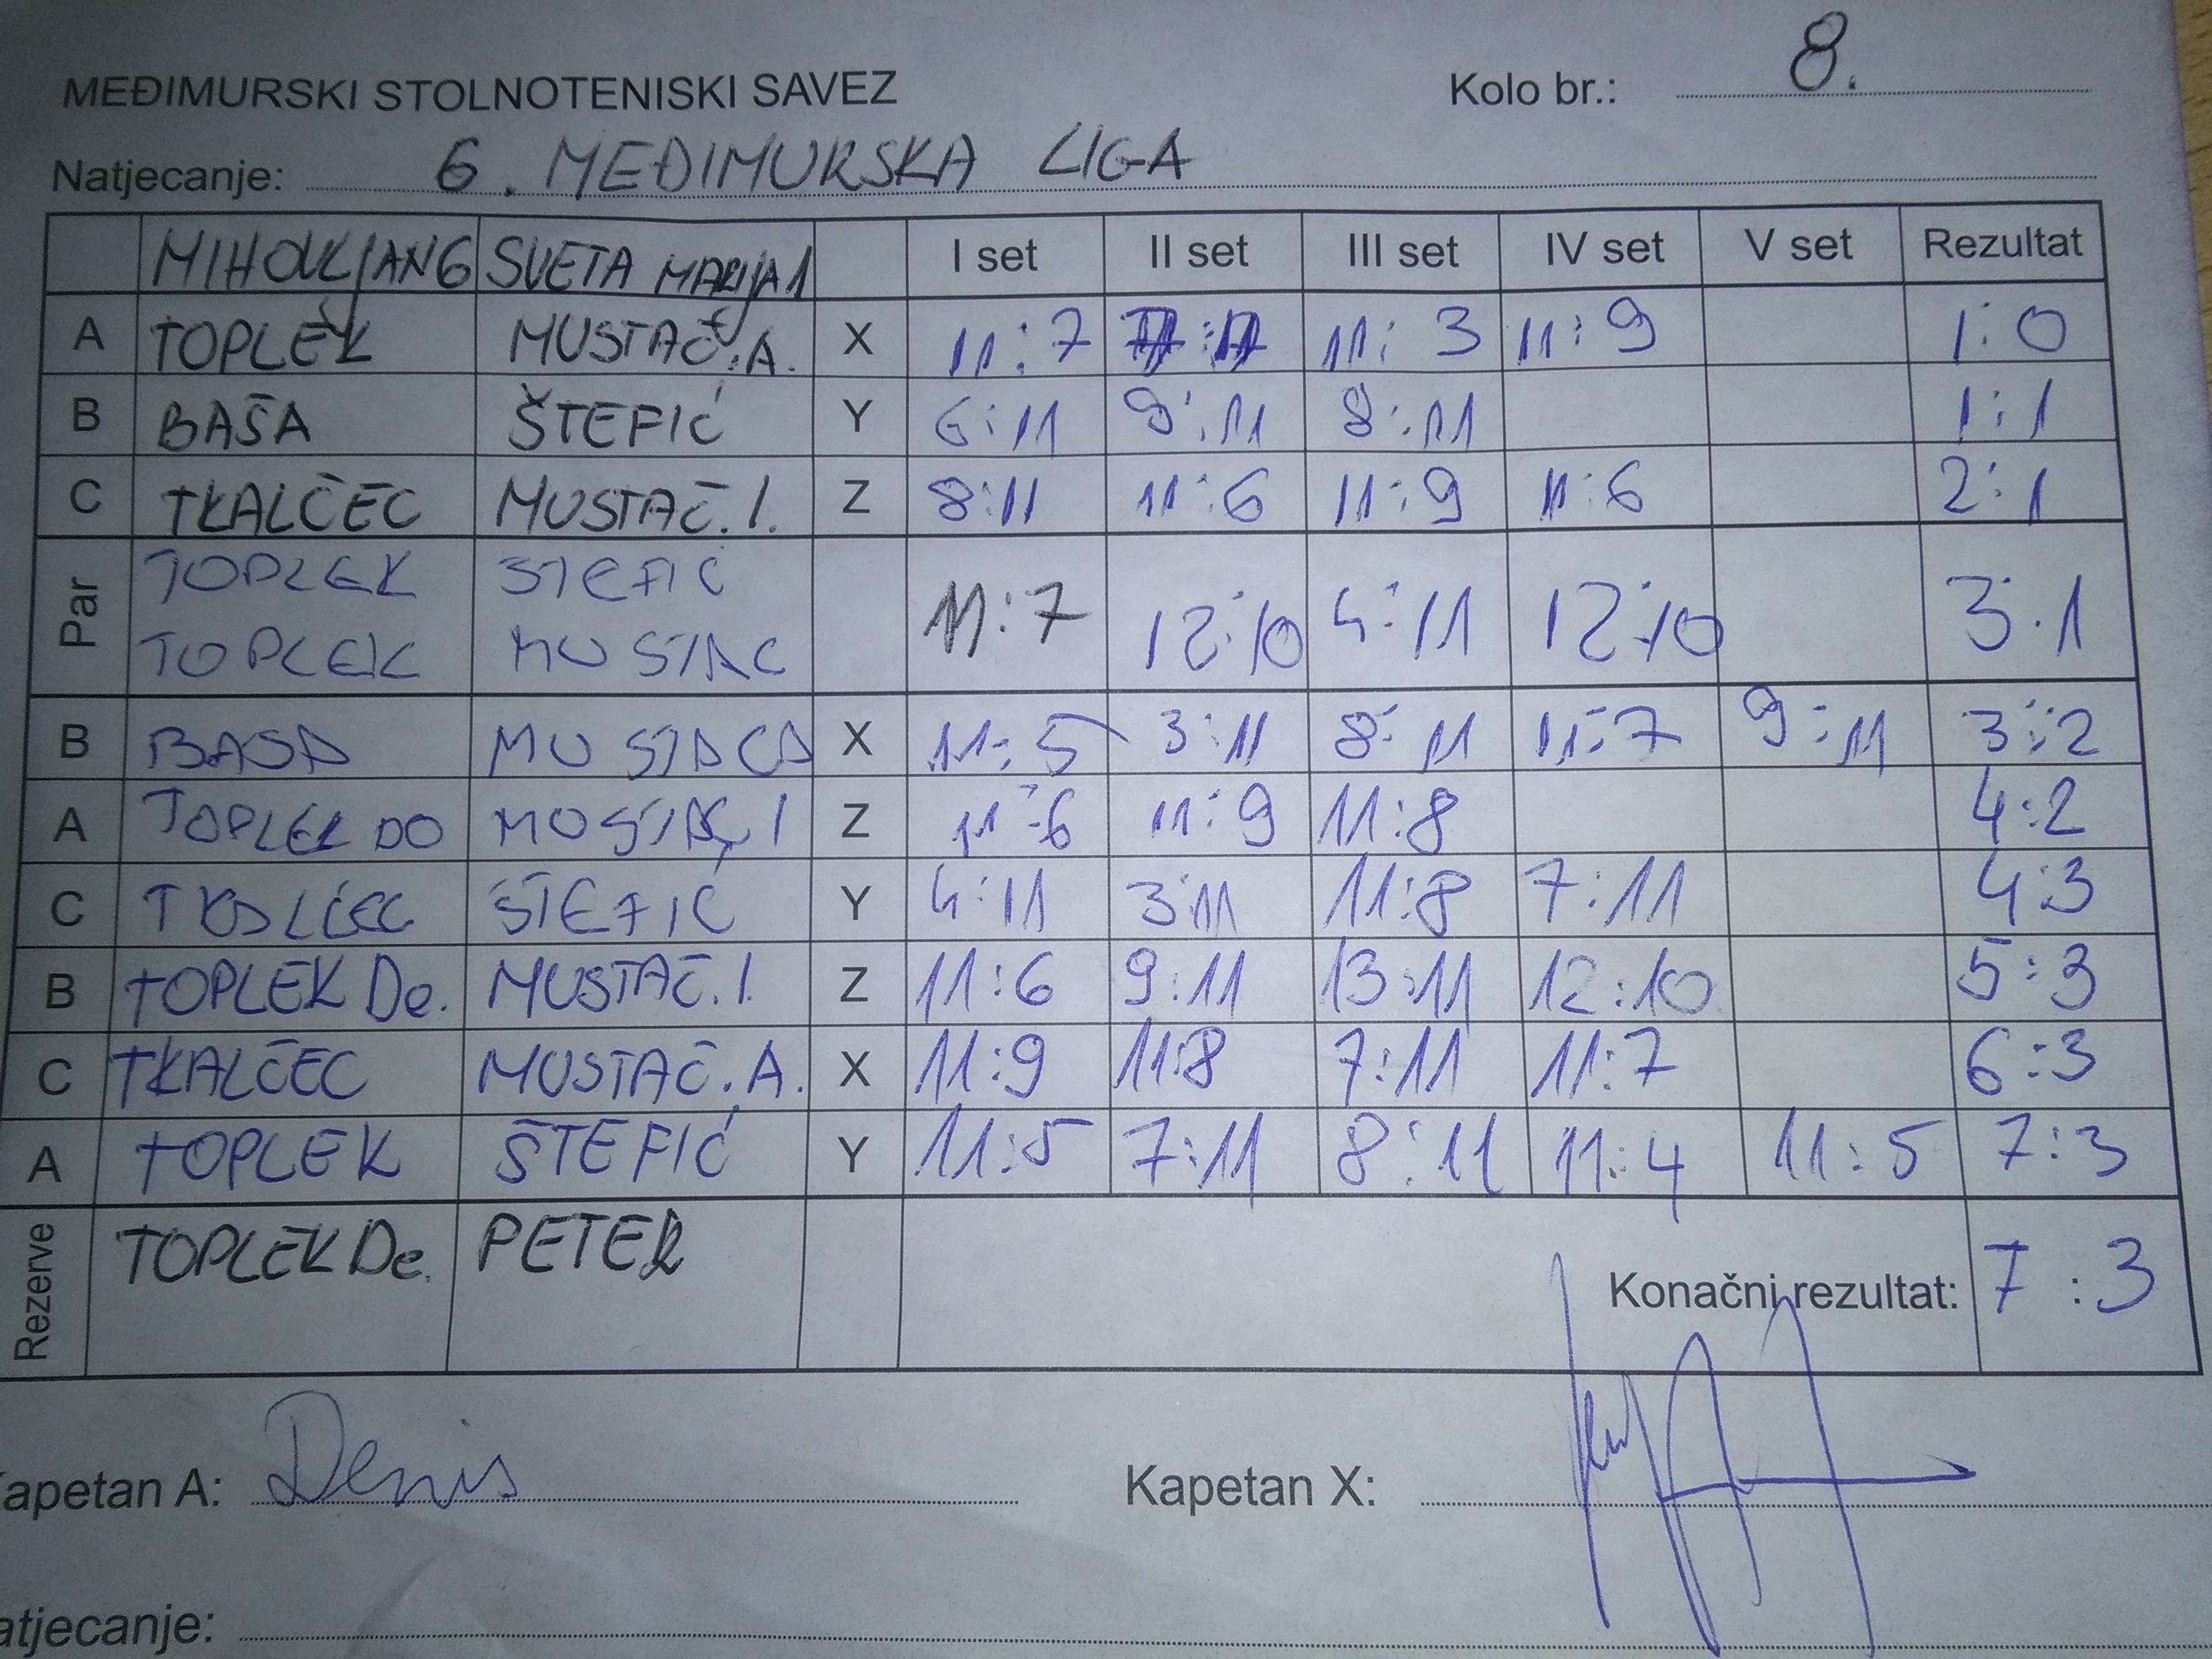 MEĐIMURSKI STOLNOTENISKI SAVEZ Kolo br.: 8.
Natjecanje: 6. MEĐIMURSKA LIGA
MIHOVLJAN 6 SVETA MARIJA 1 I set II set III set IV set V set Rezultat
A TOPLEK MUSTAČ.A. X 11:7 11:3 11:9 1:0
B BAŠA ŠTEFIĆ Y 6:11 9:11 8:11 1:1
C TKALČEC MUSTAČ.I. Z 8:11 11:6 11:9 11:6 2:1
Par TOPLEK STEFIC 11:7 12:10 4:11 12:10 3:1
TOPLEK MUSTAC
B BASA MUSTAC A X 11:5 3:11 8:11 11:7 9:11 3:2
A TOPLEK DO MUSTAČ I Z 11:6 11:9 11:8 4:2
C TKALČEC ŠTEFIĆ Y 4:11 3:11 11:8 7:11 4:3
B TOPLEK De. MUSTAČ.I. Z 11:6 9:11 13:11 12:10 5:3
C TKALČEC MUSTAČ.A. X 11:9 11:8 7:11 11:7 6:3
A TOPLEK ŠTEFIĆ Y 11:5 7:11 8:11 11:4 11:5 7:3
Rezerve TOPLEK De. PETER Konačni rezultat: 7:3
apetan A: Denis Kapetan X:
atjecanje: